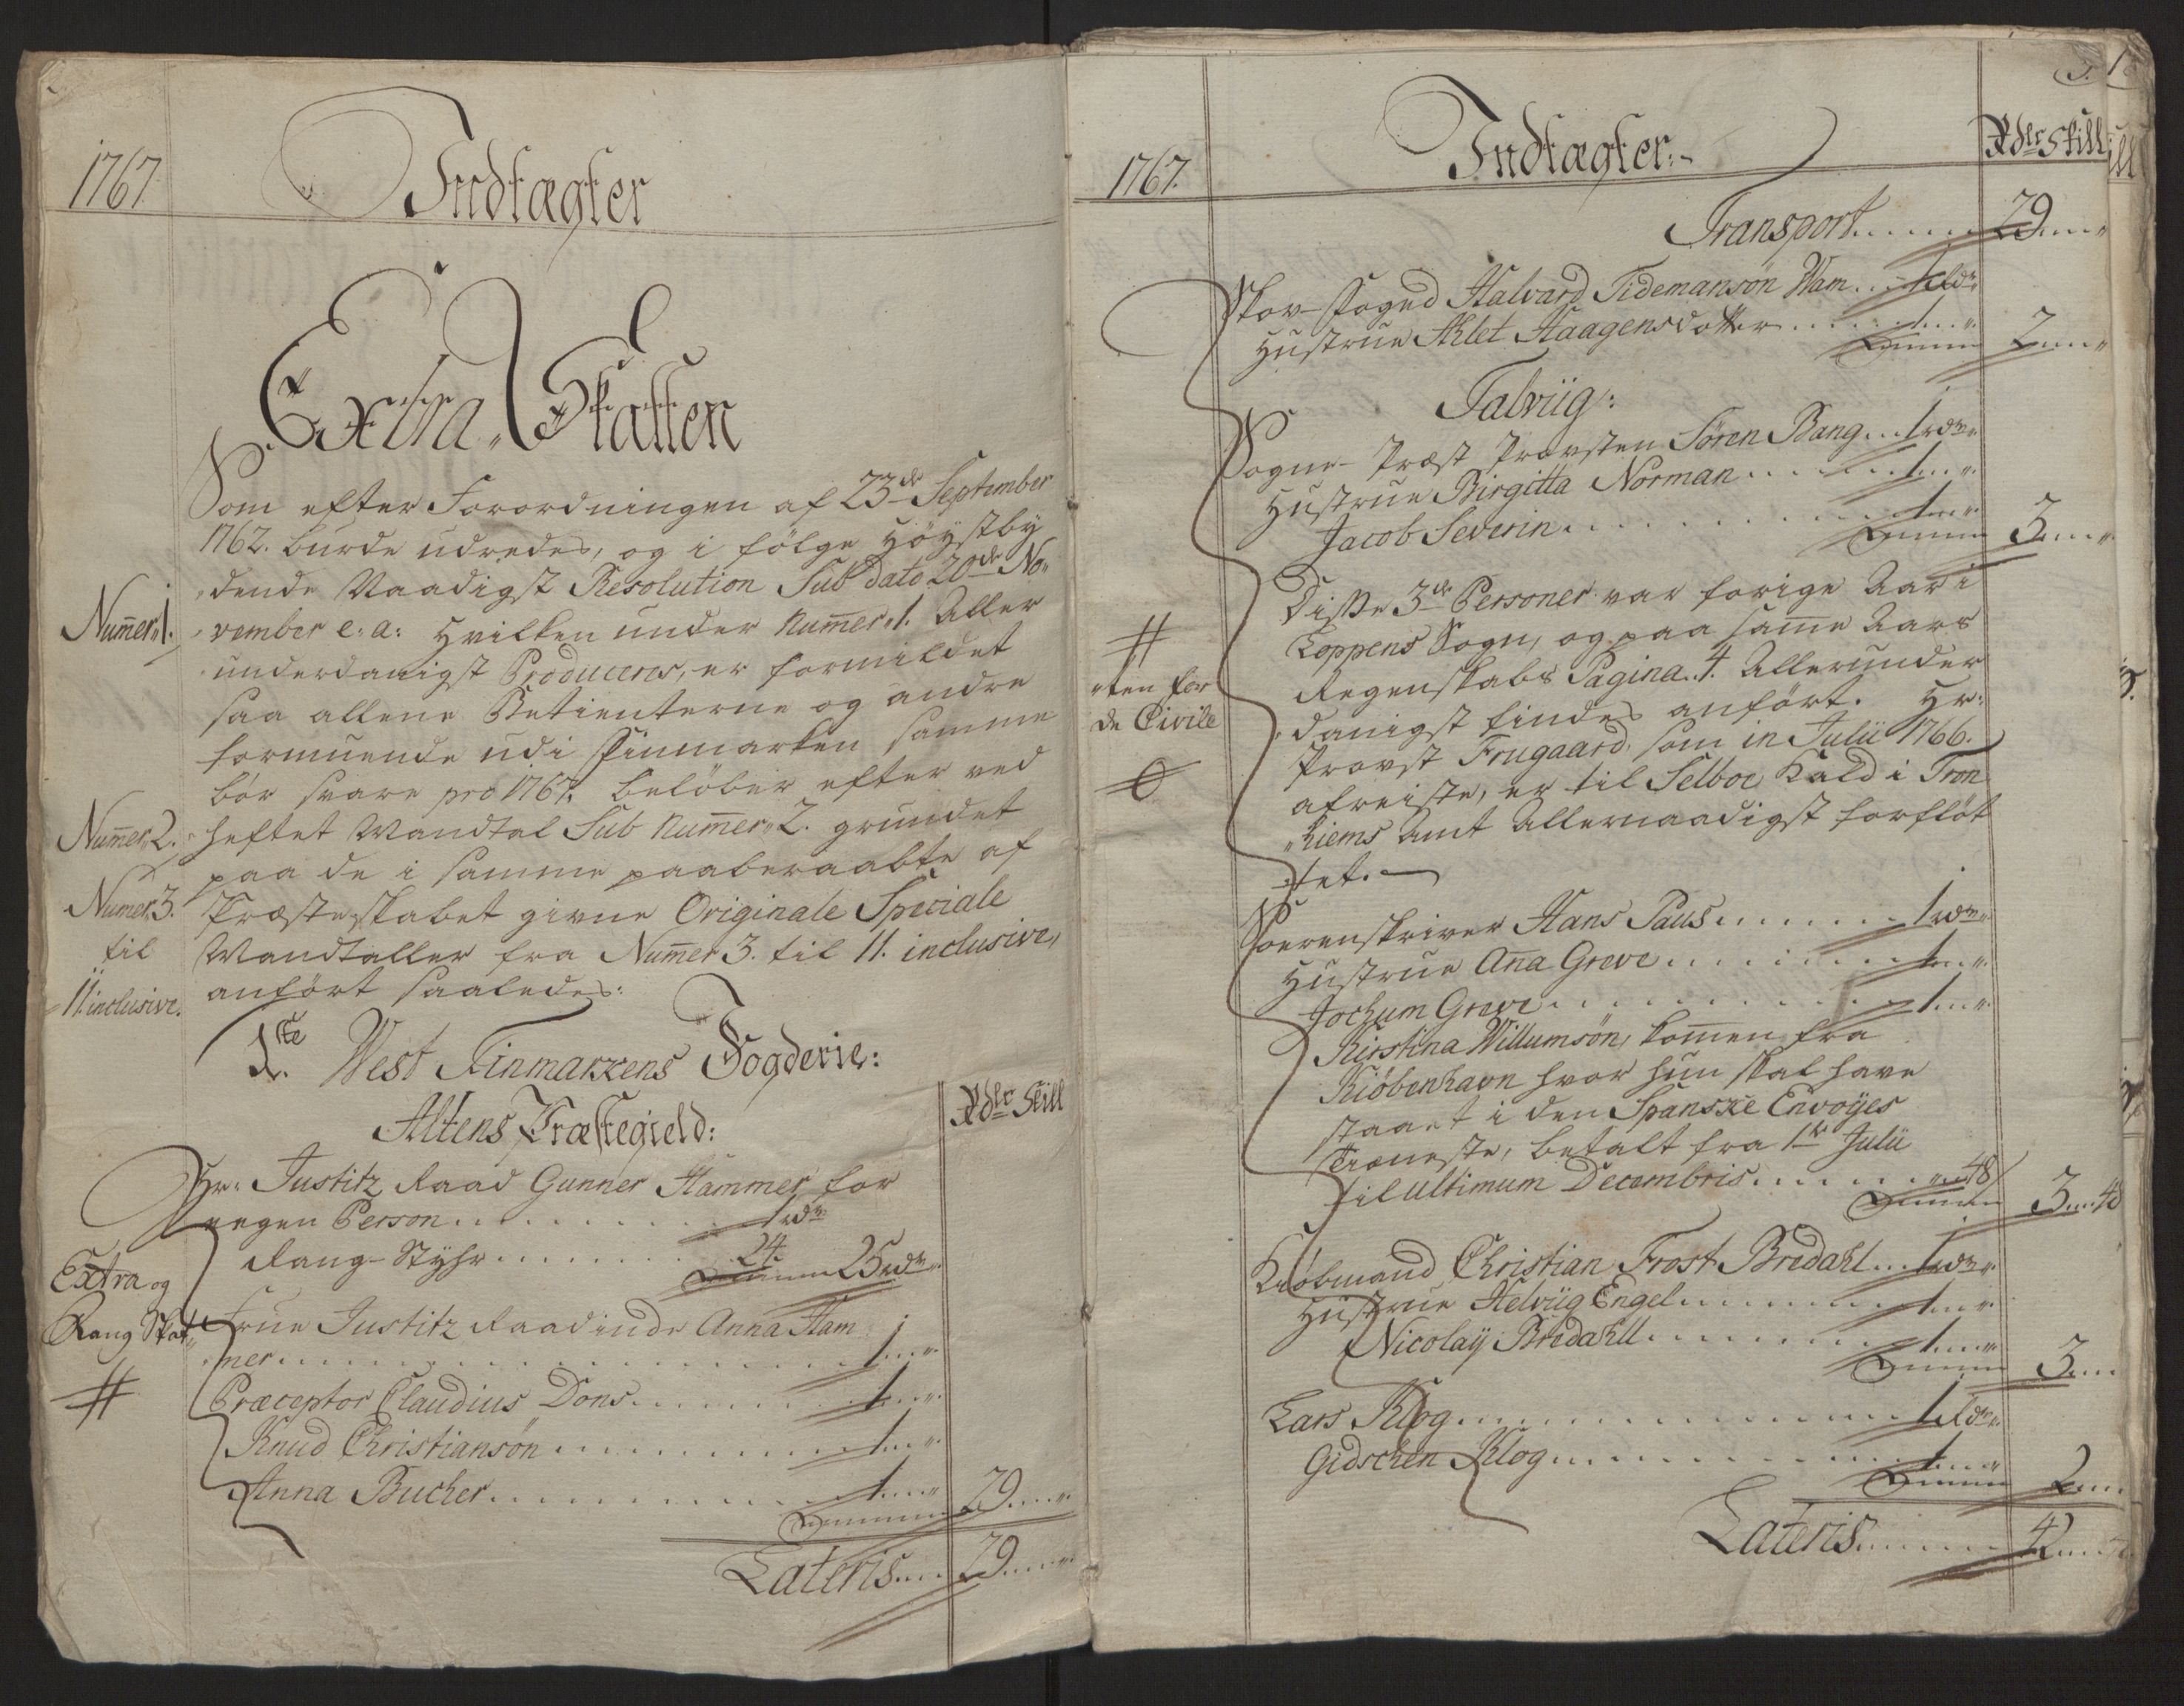 1767.
Indtægter
Extra Skatten
Som efter Forordningen af 23de September
1762. burde udredes, og i følge Höÿstbÿ
dende Naadigst Resolution Sub dato 20de No„
Num̄er„1.
„vember e: a: Hvilken under Num̄er„1. Aller
underdanigst Produceres, er formildet
saa allene Betienterne og andre
formuende udi Finmarken samme
bör svare pro 1767. belöber efter ved
Num̄er„2.
heftet Mandtal Sub Num̄er„2. grundet
paa de i samme paaberaabte af
Num̄er 3.
Præsteskabet givne Originale Speciale
til
Mandtaller fra Num̄er 3. til 11. inclusive,
11. inclusive.
anfört saaledes:
1ste West Finmarkens Fogderie:
Altens Præstegield:
Rdlr Skill
Hr: Justitz Raad Gunner Hammer for
eegen Person . . . . . 1 rdr
Rang-Stÿhr . . . . . 24.
25 rdr
Extra og
Rang Skat„
Frue Justitz Raadinde Anna Ham
„mer . . . . . 1 „
#
Præceptor Claudius Dons . . . . . 1 „
Knud Christiansön . . . . . 1 „
Anna Bucher . . . . . 1 „
29 „
Lateris . . . 29 „
1767.
Indtægter:
Rdlr Skill
Transport . . . . . 29 „
Skov-Foged Halvard Tidemansön Wam . . 1 rdr
Hustrue Ahlet Haagensdatter . . . . . 1 „
2 „
Talviig:
Sogne-Præst Provsten Sören Bang . . . 1 rdr
Hustrue Birgitta Norman . . . . . 1 „
Jacob Severin . . . . . 1 „
3 „
Diße 3de Personer var forige Aar i
#
Loppens Sogn, og paa sam̄e Aars
„ten for
Regenskabs Pagina. 4. Allerunder
de Civile
danigst findes anfört. Hr:
Provst Frugaard, som in Julii 1766.
afreiste, er til Selboe Kald i Tron
„hiems Amt Allernaadigst forflöt
„tet.
Soerenskriver Hans Paus . . . . . 1 rdr
Hustrue An̄a Greve . . . . . 1 „
Jochum Greve . . . . . 1 „
Kirstina Willumsön, kom̄en fra
Kiöbenhavn hvor hun skal have
staaet i den Spanske Envoÿes
Tieneste, betalt fra 1te Julii
til ultimum Decembris . . . . . „ 48
3 „ 48
Kiöbmand Christian Frost Bredahl . . . 1 rdr
Hustrue Helviig Engel . . . . . 1 „
Nicolaÿ Bredahll . . . . . 1 „
3 „
Lars Klog . . . . . 1 rdr
Gidschen Klog . . . . . 1 „
2 „
Lateris . . . . . 42 „